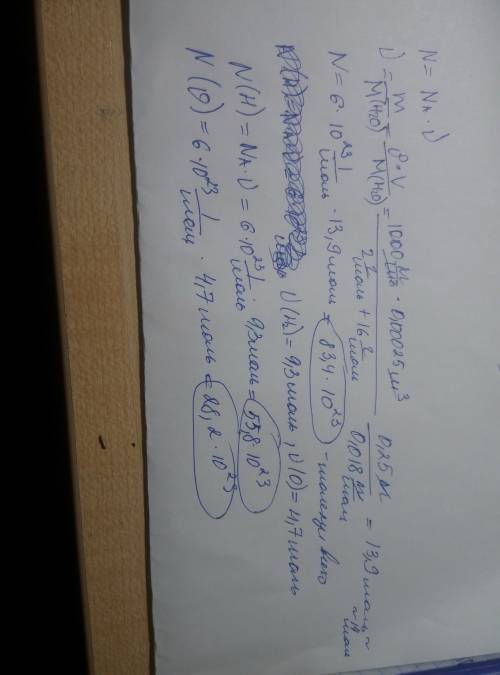 N = N_A · ν
ν = m / M(H₂O) = ρ·V / M(H₂O) = 1000 кг/м³ · 0,00025 м³ / 2 г/моль + 16 г/моль = 0,25 кг / 0,018 кг/моль = 13,9 моль ≈ 14 моль
N = 6·10²³ 1/моль · 13,9 моль = 83,4·10²³ – молекул всего
ν(H₂) = 9,3 моль, ν(O) = 4,7 моль
N(H) = N_A · ν = 6·10²³ 1/моль · 9,3 моль = 55,8·10²³
N(O) = 6·10²³ 1/моль · 4,7 моль = 28,2·10²³